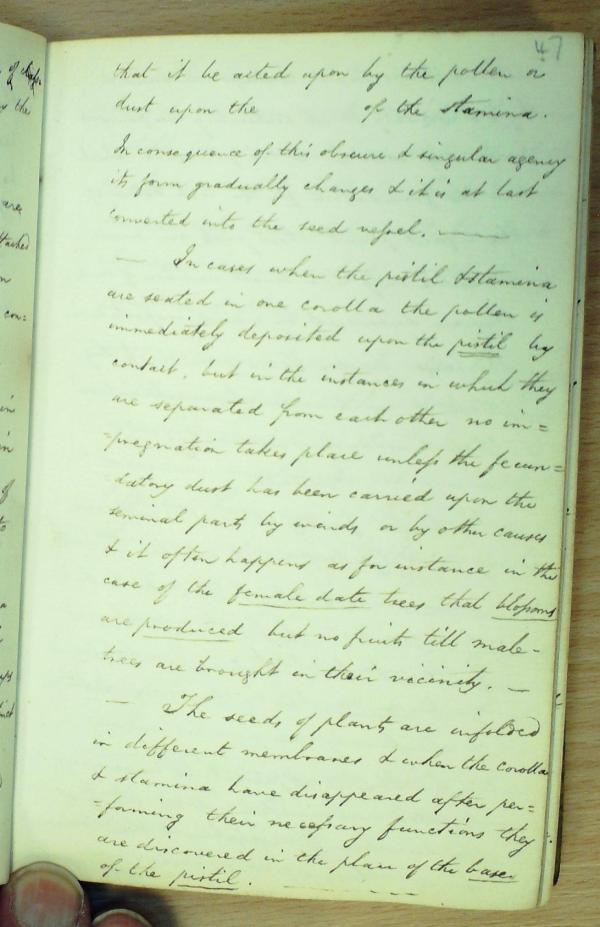 47
that it be acted upon by the pollen or
dust upon the of the stamina.
In consequence of this obscure & singular agency
its form gradually changes & it is at last
converted into the seed vessel. —
— In cases when the pistil & stamina
are seated in one corolla the pollen is
immediately deposited upon the pistil by
contact, but in the instances in which they
are separated from each other no im=
=pregnation takes place unless the fecun=
datory dust has been carried upon the
seminal parts by winds or by other causes
& it often happens as for instance in the
case of the female date trees that blossoms
are produced but no fruits till male-
trees are brought in their vicinity. —
— The seeds of plants are infolded
in different membranes & when the corolla
& stamina have disappeared after per=
=forming their necessary functions they
are discovered in the place of the base
of the pistil.
of
the
are
con=
in
in
of
to
a